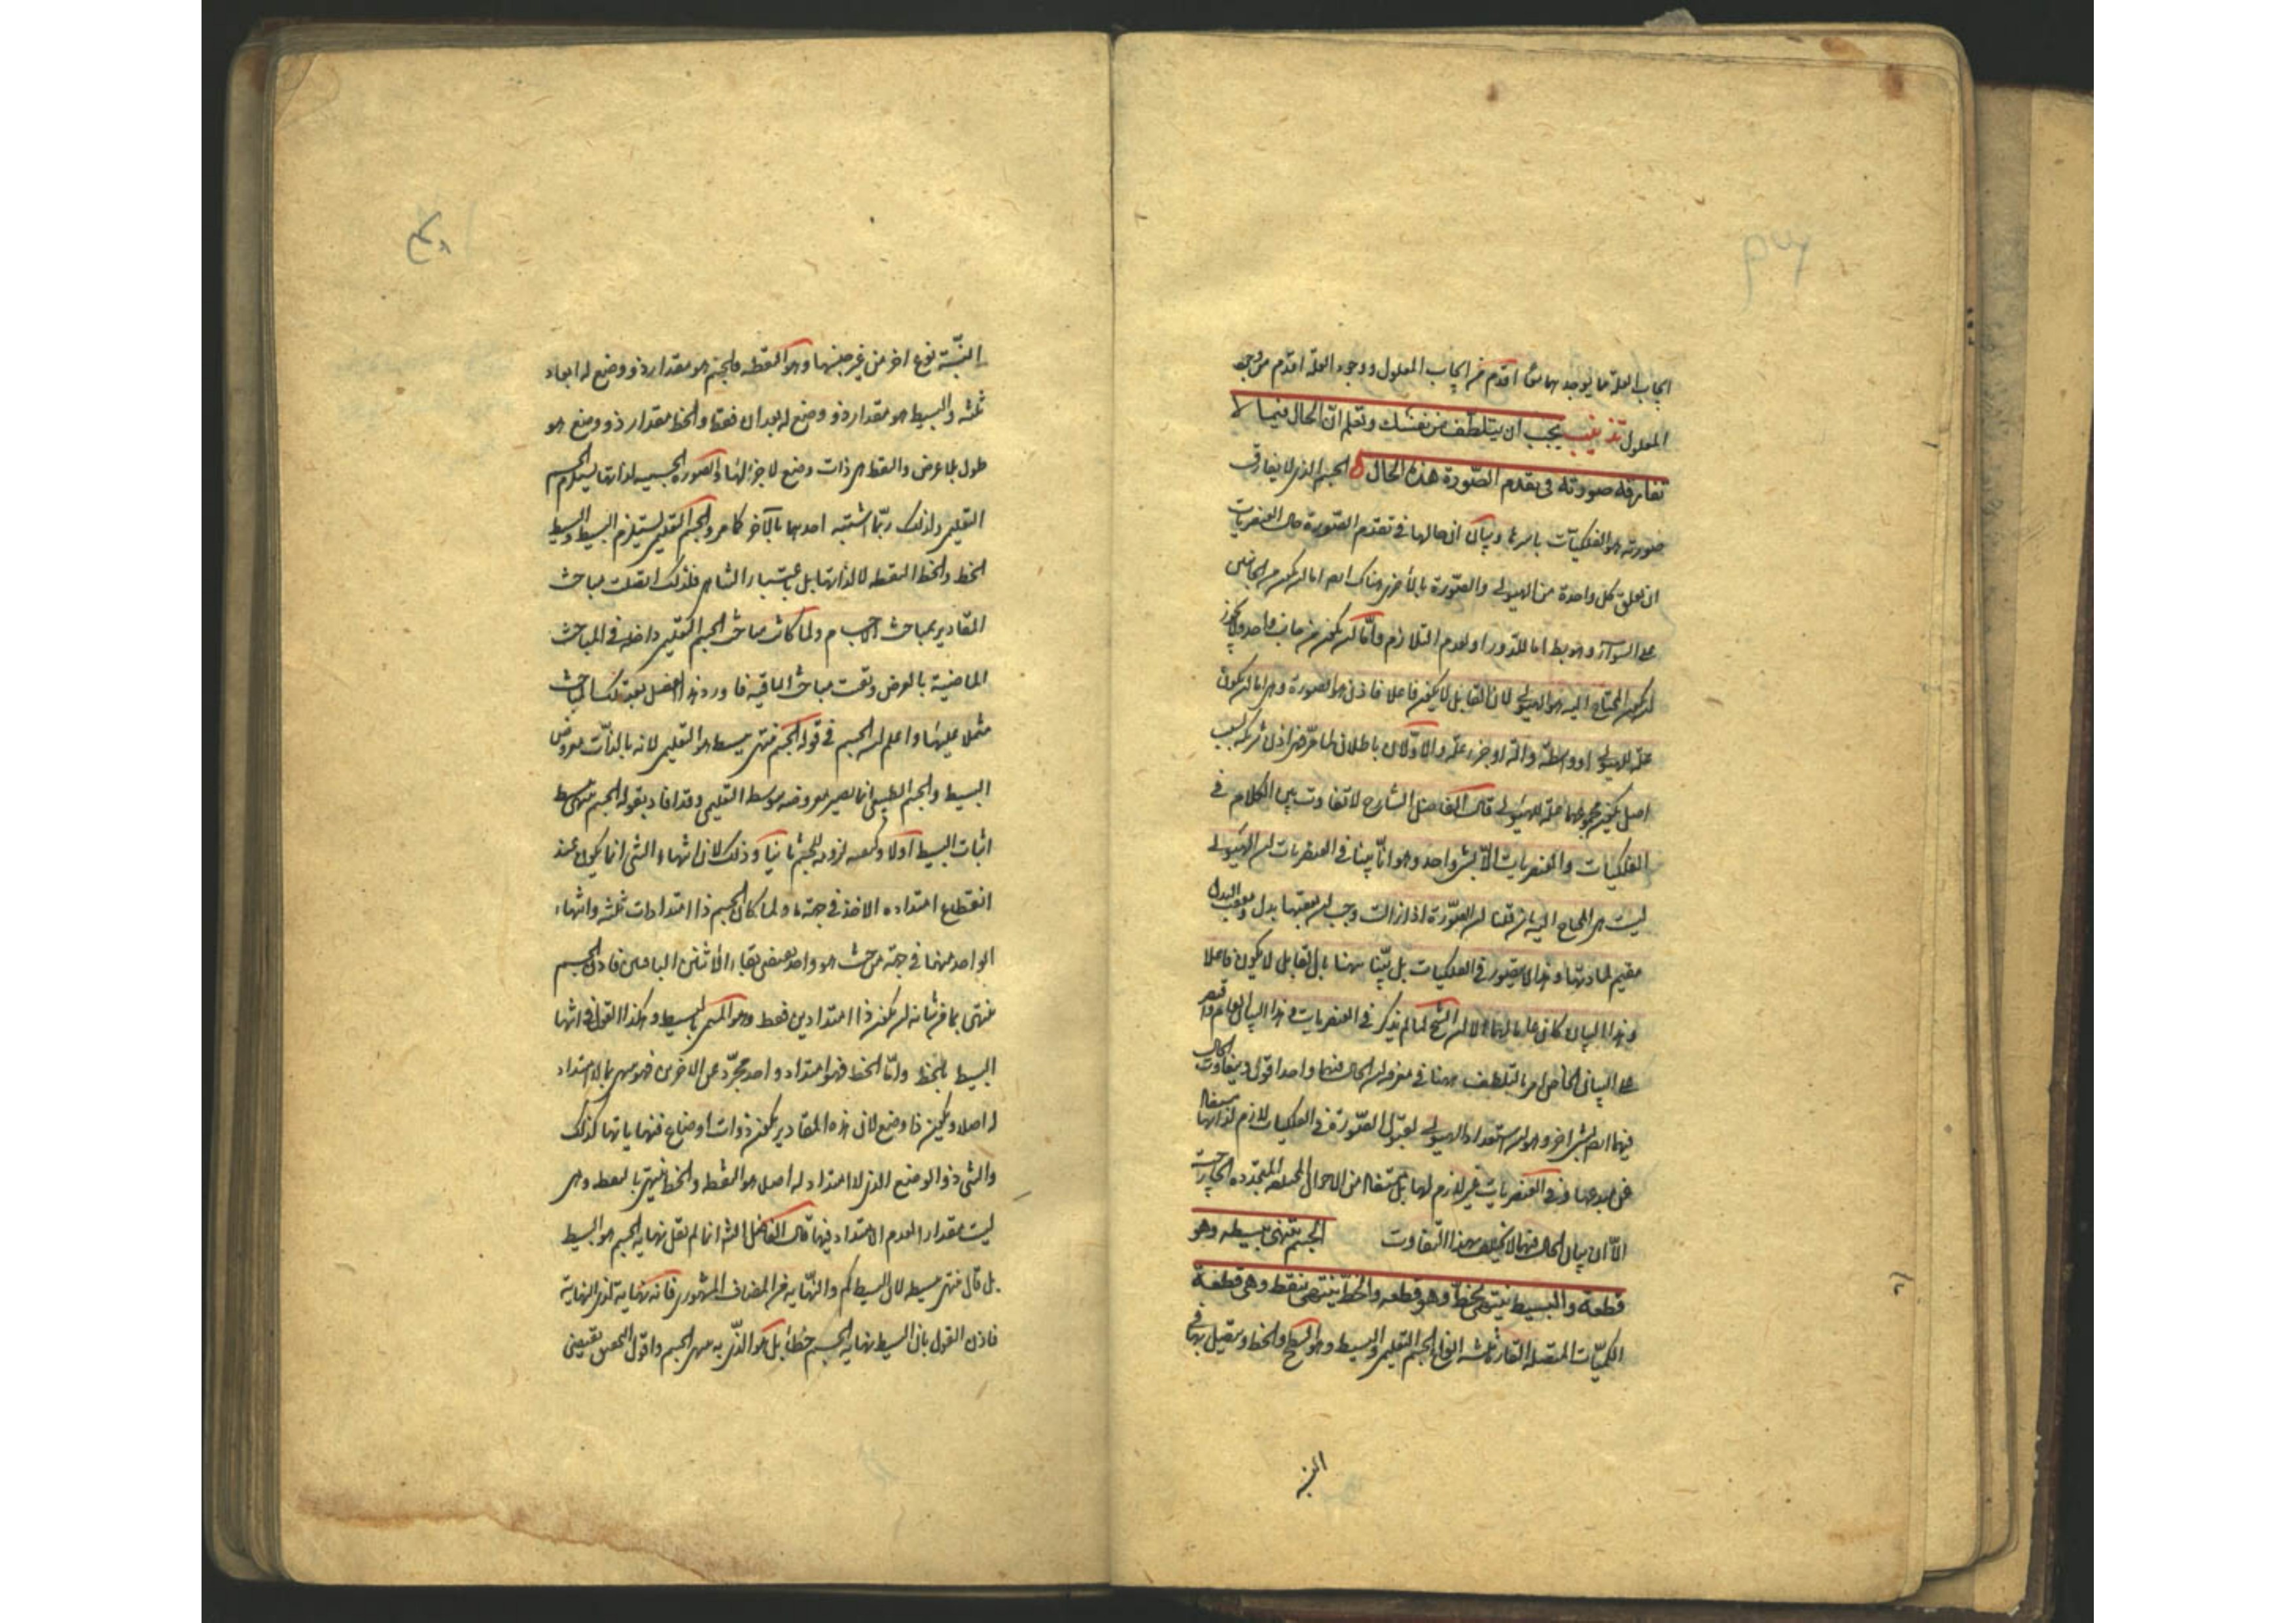 ايجاب العلة ما يوجد بهما اقدم من ايجاب المعلول ووجود العلة اقدم من وجود
المعلول تذنيب يجب ان يتلطف من نفسك وتعلم ان الحال فيما لا
تفارقه صورته في تقدم الصورة هذه الحال الجسم الذى لا يفارق
صورته هو الفلكيات باسرها وبيان ان حالها في تقدم الصورة حال العنصريات
ان تعلق كل واحدة من الهيولى والصورة بالاخرى هناك ايضا اما لن يكون من الجانبين
على السواء وهو بط اما للدور او لعدم التلازم واما لن يكون من جانب واحد ولا يجوز
لن يكون المحتاج اليه هو الهيولى لان القابل لا يكون فاعلا فاذن هو الصورة وهى اما لن يكون
علة للهيولى او واسطة والة او جزء علة والاولان باطلان لما مر فهى اذن شريكة لسبب
اصل يكون مجموعهما علة للهيولى قال الفاضل الشارح لا تفاوت بين الكلام في
الفلكيات والعنصريات الا بشئ واحد وهو انا بينا في العنصريات لن الهيولى
ليست هى المحتاج اليه بان قلنا لن الصورة اذا زالت وجب لن يعقبها بدل ومعقب البدل
مقيم لمادتها وهذا لا يتصور في الفلكيات بل بينا ههنا بان القابل لا يكون فاعلا
وهذا البيان كان عاما لهما الا لن الشيخ لما لم يذكر في العنصريات هذا البيان العام واقتصر
على البيان الخاص امر بالتلطف ههنا في معرفة لن الحال فيهما واحد اقول ويتفاوت الحال
فيهما ايضا بشئ اخر وهو لن استعداد الهيولى لقبول الصورة في الفلكيات لازم لذاتها مستفاد
عن مبدعها وفي العنصريات غير لازم لها بل مستفاد من الاحوال المختلفة المتجددة الخارجة
الا ان بيان الحال فيهما لا يختلف بهذا التفاوت الجسم ينتهى ببسيطه وهو
قطعه والبسيط ينتهى بخطه وهو قطعه والخط ينتهى بنقطه وهى قطعه
الكميات المتصلة القارة ثلثة انواع الجسم التعليمى والبسيط وهو السطح والخط ويتصل بها في
البتة نوع اخر من غير جنسها وهو النقطة فالجسم هو مقدار ذو وضع له ابعاد
ثلثه والبسيط هو مقدار ذو وضع له بعدان فقط والخط مقدار ذو وضع هو
طول بلا عرض والنقطة هى ذات وضع لا جزء لها والصورة الجسمية لذاتها يستلزم الجسم
التعليمى ولذلك ربما اشتبه احدهما بالآخر كما مر والجسم التعليمى يستلزم البسيط والبسيط
الخط والخط النقطة لا لذاتها بل باعتبار التناهى فلذلك اتصلت مباحث
المقادير بمباحث الاجسام ولما كانت مباحث الجسم التعليمى داخلة في المباحث
الماضية بالعرض وبقيت مباحث الباقية فاورد هذا الفصل بعد تلك المباحث
مشتملا عليها واعلم لن الجسم في قوله الجسم ينتهى ببسيطه هو التعليمى لانه بالذات معروض
البسيط والجسم الطبيعى انما يصير معروضه بتوسط التعليمى وقد افاد بقوله الجسم ينتهى ببسيطه
اثبات البسيط اولا وكيفية لزومه للجسم ثانيا وذلك لان انتهاء الشئ انما يكون عند
انقطاع امتداده الاخذ في جهة ما ولما كان الجسم ذا امتدادات ثلثة وانتهاء
الواحد منها في جهة من حيث هو واحد يقتضى بقاء الاثنين الباقيين فاذن الجسم
ينتهى بما من شانه لن يكون ذا امتدادين فقط وهو المسمى بالبسيط وهكذا القول في انتهاء
البسيط بالخط واما الخط فهو امتداد واحد مجرد عن الاخرين فهو ينتهى بما لا امتداد
له اصلا ويكون ذا وضع لان هذه المقادير يكون ذوات اوضاع فنهاياتها كذلك
والشئ ذو الوضع الذى لا امتداد له اصلا هو النقطة والخط ينتهى بالنقطة وهى
ليست بمقدار لعدم الامتداد فيها قال الفاضل الشه انما لم يقل نهاية الجسم هو البسيط
بل قال ينتهى ببسيطه لان البسيط كم والنهاية من المضاف المشهورى فانه نهاية لذى النهاية
فاذن القول بان البسيط نهاية الجسم خطأ بل هو الذى به ينتهى الجسم واقول التحقيق يقتضى
البتة